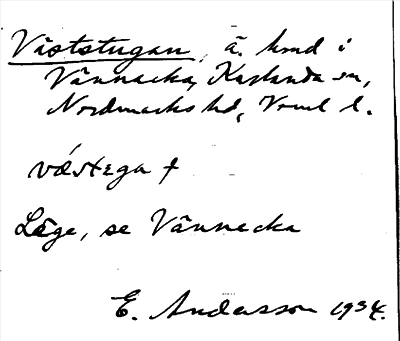 Väststugan, ä. hmd i
Vännacka, Karlanda sn,
Nordmarks hd, Värml. l.
västega †
Läge, se Vännacka
E. Andersson 1934.